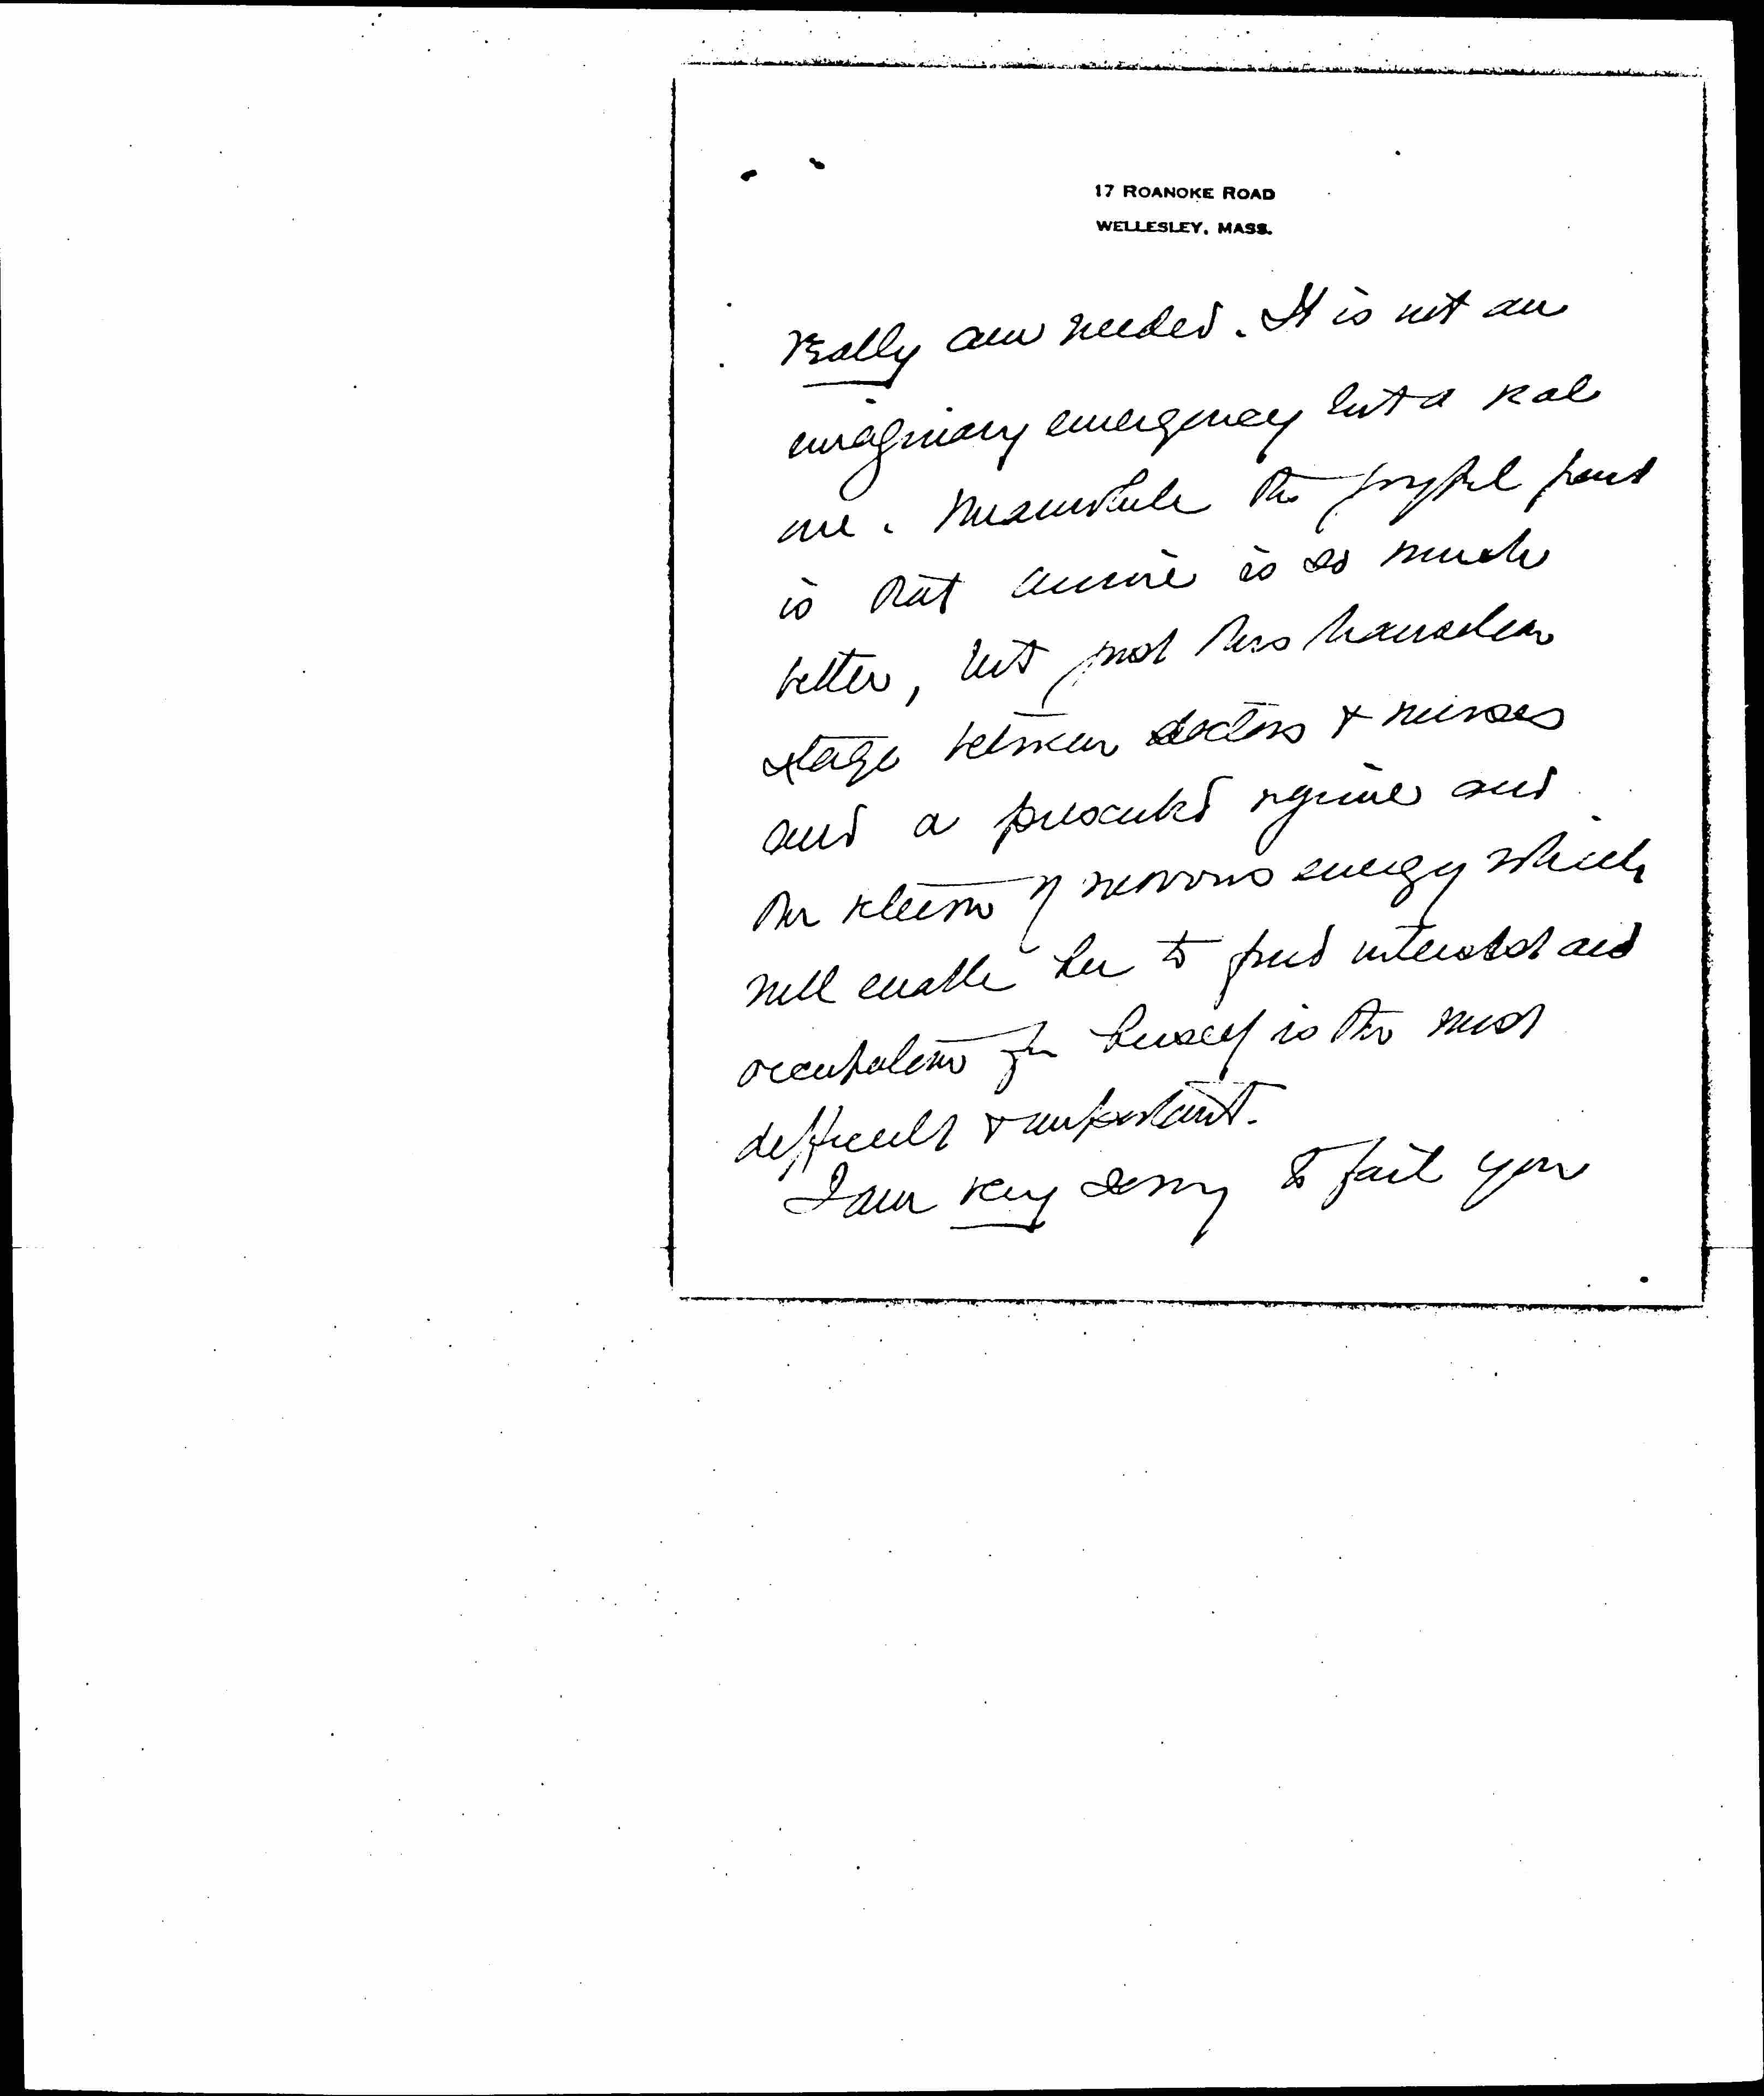 17 ROANOKE ROAD
WELLESLEY, MASS.
really am needed. It is not an
imaginary emergency but a real
one. Meanwhile the joyful part
is that Annie is so much
better, but just this transition
stage between doctors & nurses
and a prescribed regime and
the return of nervous energy which
will enable her to find interest and
occupation for herself is the most
difficult & important.
I am very sorry to fail you